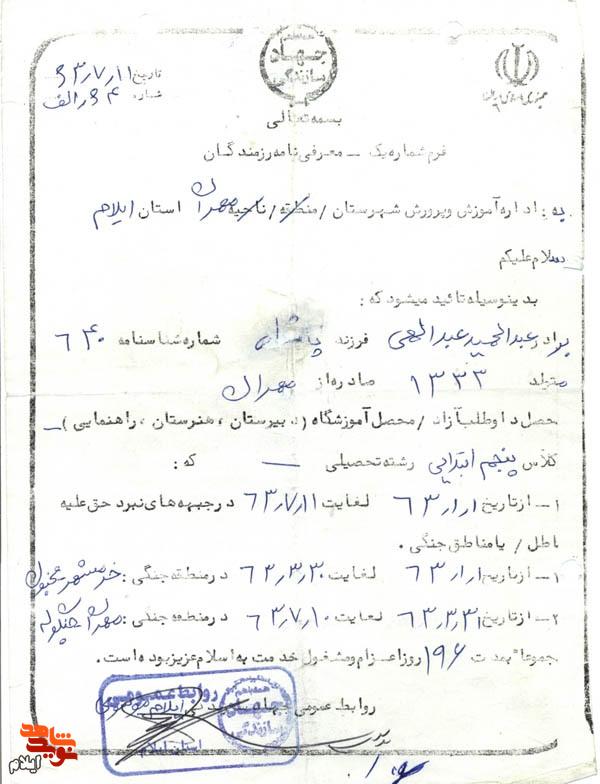 جمهوری اسلامی ایران
همه با هم
جهاد
سازندگی
تاریخ ۶۳٫۷٫۱۱
شماره ۳۴ر الف
بسمه تعالی
فرم شماره یک – معرفی نامه رزمندگان
به: اداره آموزش و پرورش شهرستان / منطقه / ناحیه مهران استان ایلام
سلام علیکم
بدینوسیله تائید میشود که:
برادر عبدالحمید فرزند شماره شناسنامه ۶۴۰
متولد ۱۳۳۳ صادره از مهران
محصل داوطلب آزاد / محصل آموزشگاه (دبیرستان، هنرستان، راهنمایی) –
کلاس پنجم ابتدایی رشته تحصیلی — که:
۱– از تاریخ ۶۳٫۱٫۱ لغایت ۶۳٫۷٫۱۱ در جبهه های نبرد حق علیه
باطل / یا مناطق جنگی.
۱– از تاریخ ۶۳٫۱٫۱ لغایت ۶۳٫۳٫۳۰ در منطقه جنگی: خرمشهر
۲– از تاریخ ۶۳٫۳٫۳۱ لغایت ۶۳٫۷٫۱۰ در منطقه جنگی: مهران چنگوله
جمعا" بمدت ۱۹۶ روز اعزام و مشغول خدمت به اسلام عزیز بوده است.
روابط عمومی جهاد سازندگی
روابط عمومی
همه با هم
جهاد
سازندگی
استان ایلام
نوید شاهد
ایلام